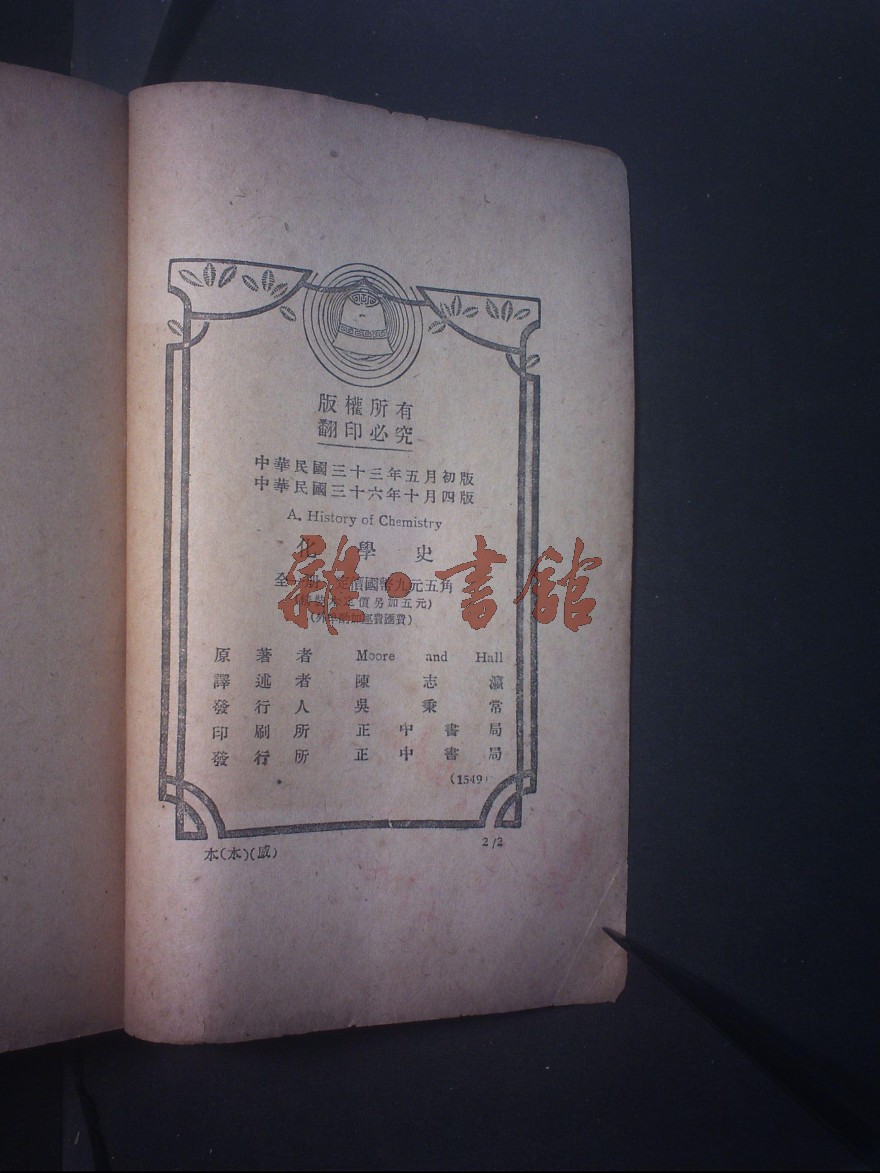 版權所有
翻印必究
中華民國三十三年五月初版
中華民國三十六年十月四版
A. History of Chemistry
化學史
全 定價國幣九元五角
定價另加五元)
(外埠酌加運費匯費)
原著者 Moore and Hall
譯述者 陳志瀛
發行人 吳秉常
印刷所 正中書局
發行所 正中書局
(1549)
本(本)(威)
2/2
雜·書館